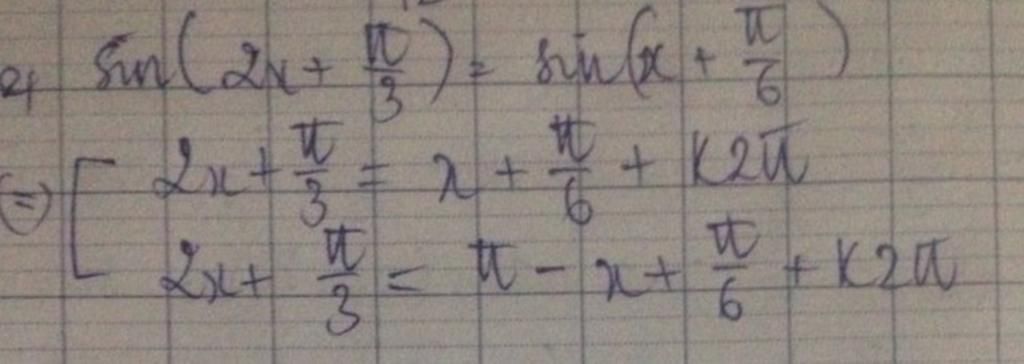 2, sin(2x + π/3) = sin(x + π/6)
⇔ [ 2x + π/3 = x + π/6 + K2π
2x + π/3 = π - x + π/6 + K2π